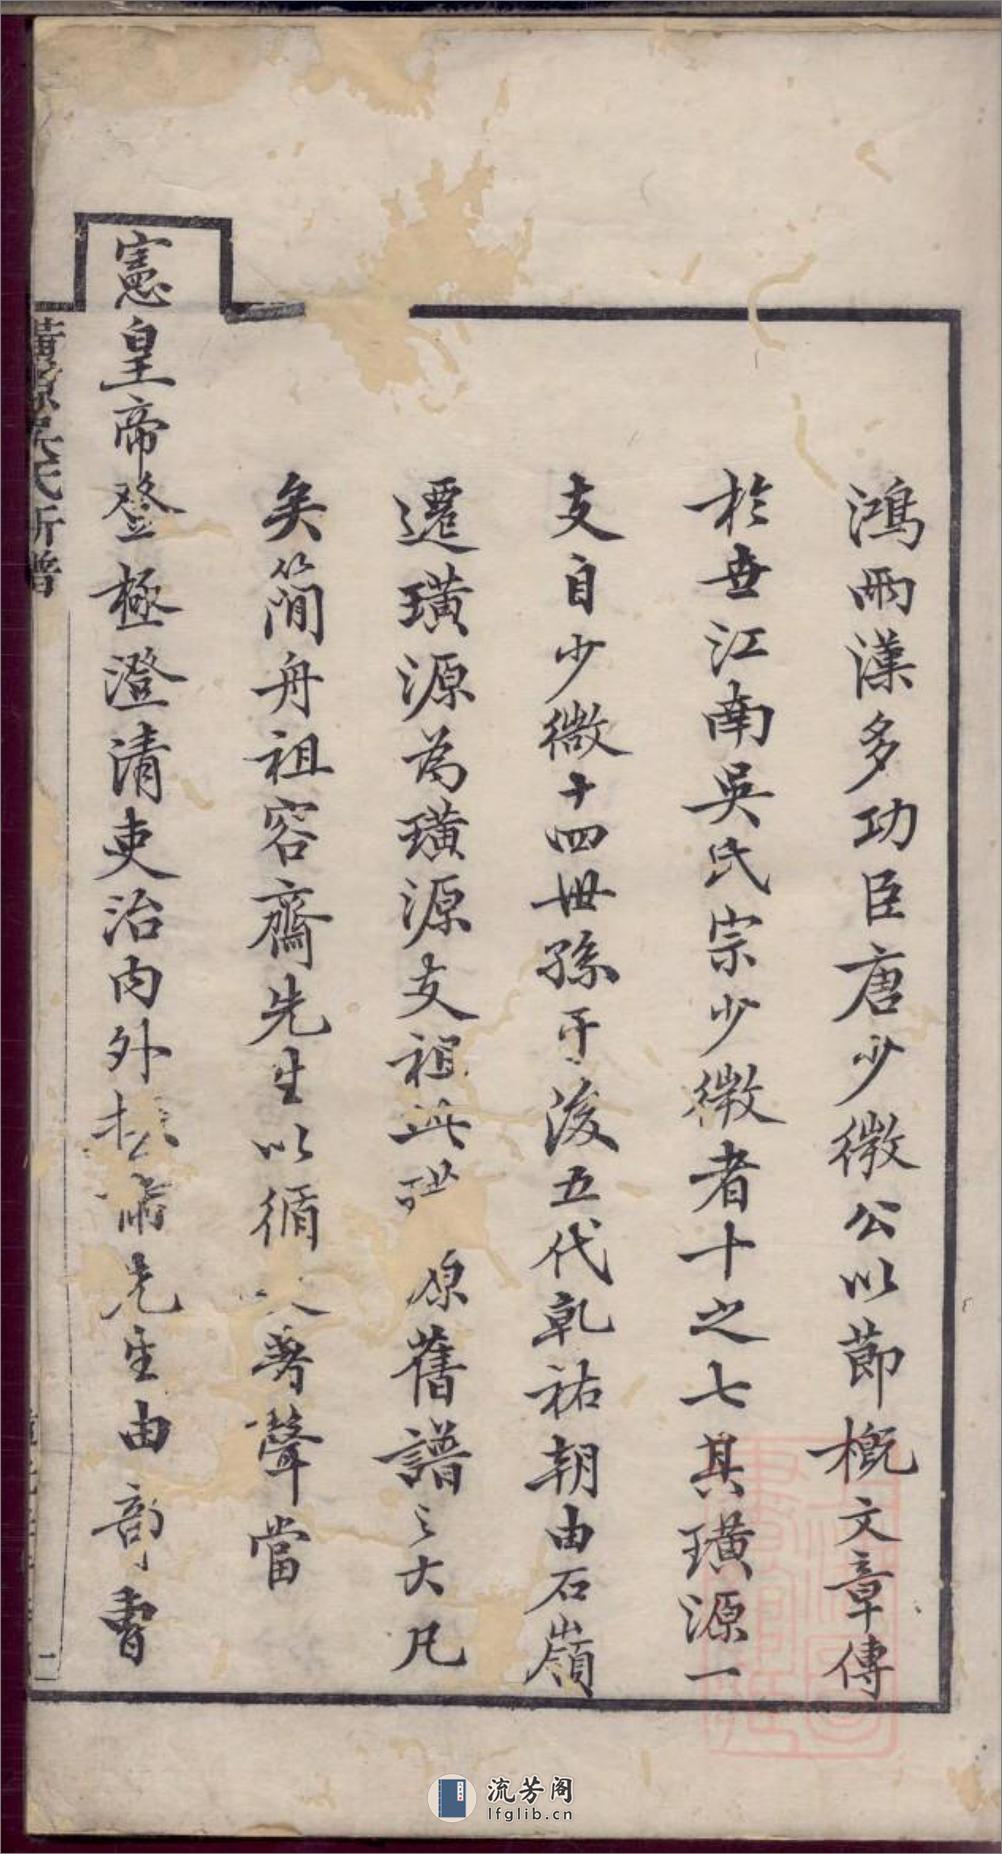 鴻兩漢多功臣唐少微公以節概文章傳
於世江南吳氏宗少微者十之七其璜源一
支自少微十四世孫予浚五代乾祐朝由石嶺
遷璜源為璜源支祖此 原舊譜之大凡
矣簡舟祖容齋先生以循 著聲當
憲皇帝登極澄清吏治內外 肅先生由部曹
璜源吳氏新譜
二
流芳阁
lfglib.cn